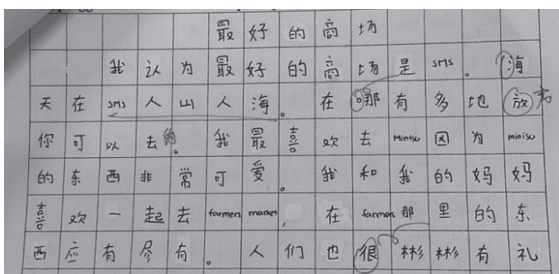 最好的商场
我认为最好的商场是sms。海
天在sms人山人海。在哪有多地放
你可以去的。我最喜欢去Miniso因为miniso
的东西非常可爱。我和我的妈妈
喜欢一起去farmers market,在farmers那里的东
西应有尽有。人们也很彬彬有礼